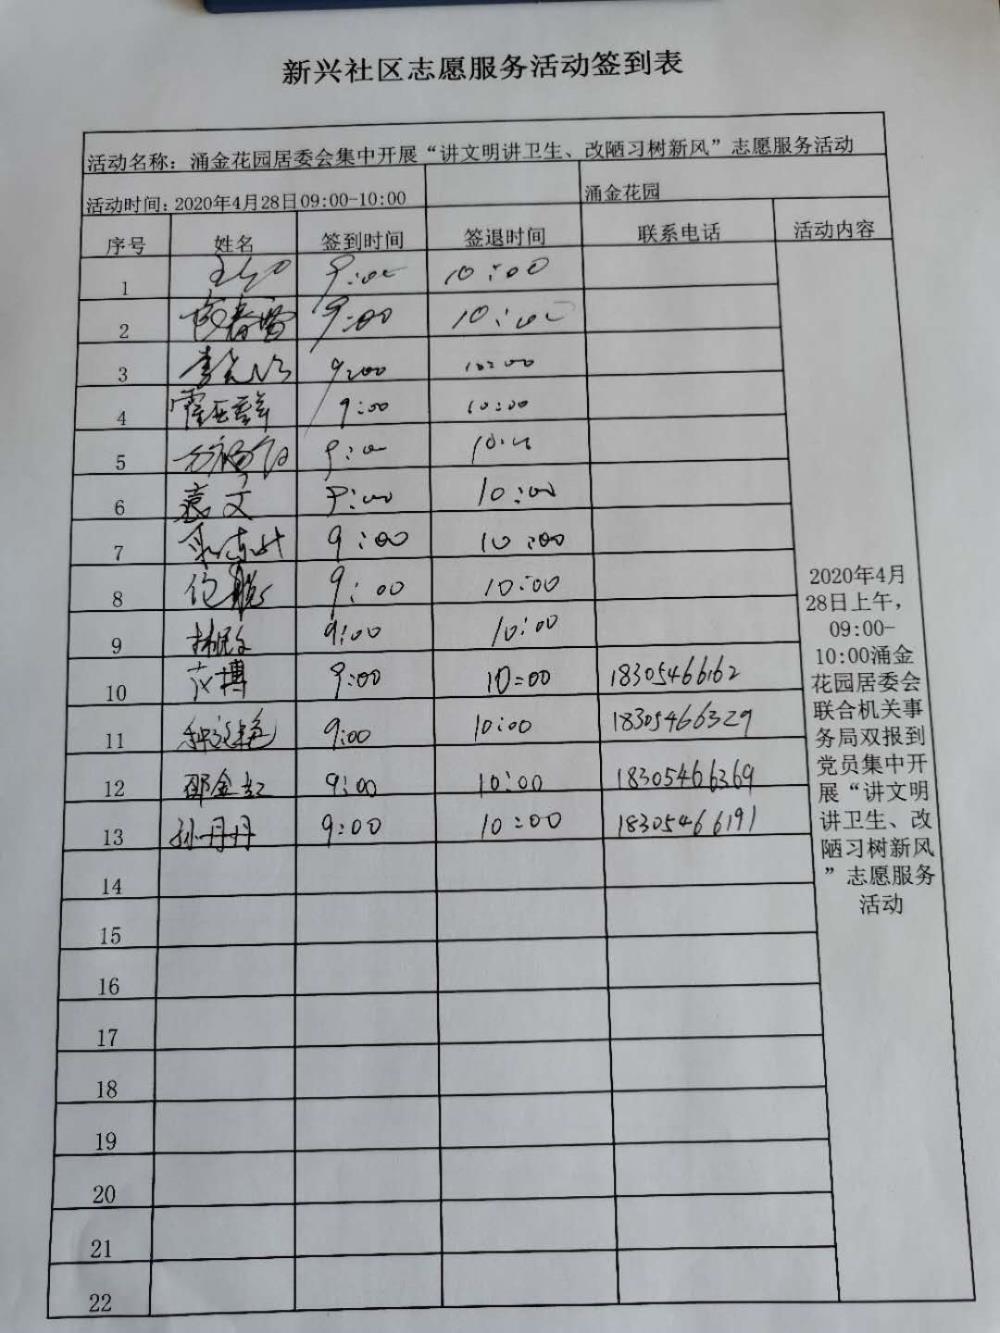 新兴社区志愿服务活动签到表
活动名称：涌金花园居委会集中开展“讲文明讲卫生、改陋习树新风”志愿服务活动
活动时间：2020年4月28日09:00-10:00 涌金花园
序号 姓名 签到时间 签退时间 联系电话 活动内容
1 9:00 10:00
2 9:00 10:00
3 9:00 10:00
4 9:00 10:00
5 9:00 10:00
6 袁文 9:00 10:00
7 9:00 10:00
8 9:00 10:00
9 9:00 10:00
10 9:00 10:00 18305466162
11 9:00 10:00 18305466329
12 邵金 9:00 10:00 18305466369
13 孙丹丹 9:00 10:00 18305466191
14
15
16
17
18
19
20
21
22
2020年4月
28日上午，
09:00-
10:00涌金
花园居委会
联合机关事
务局双报到
党员集中开
展“讲文明
讲卫生、改
陋习树新风
”志愿服务
活动